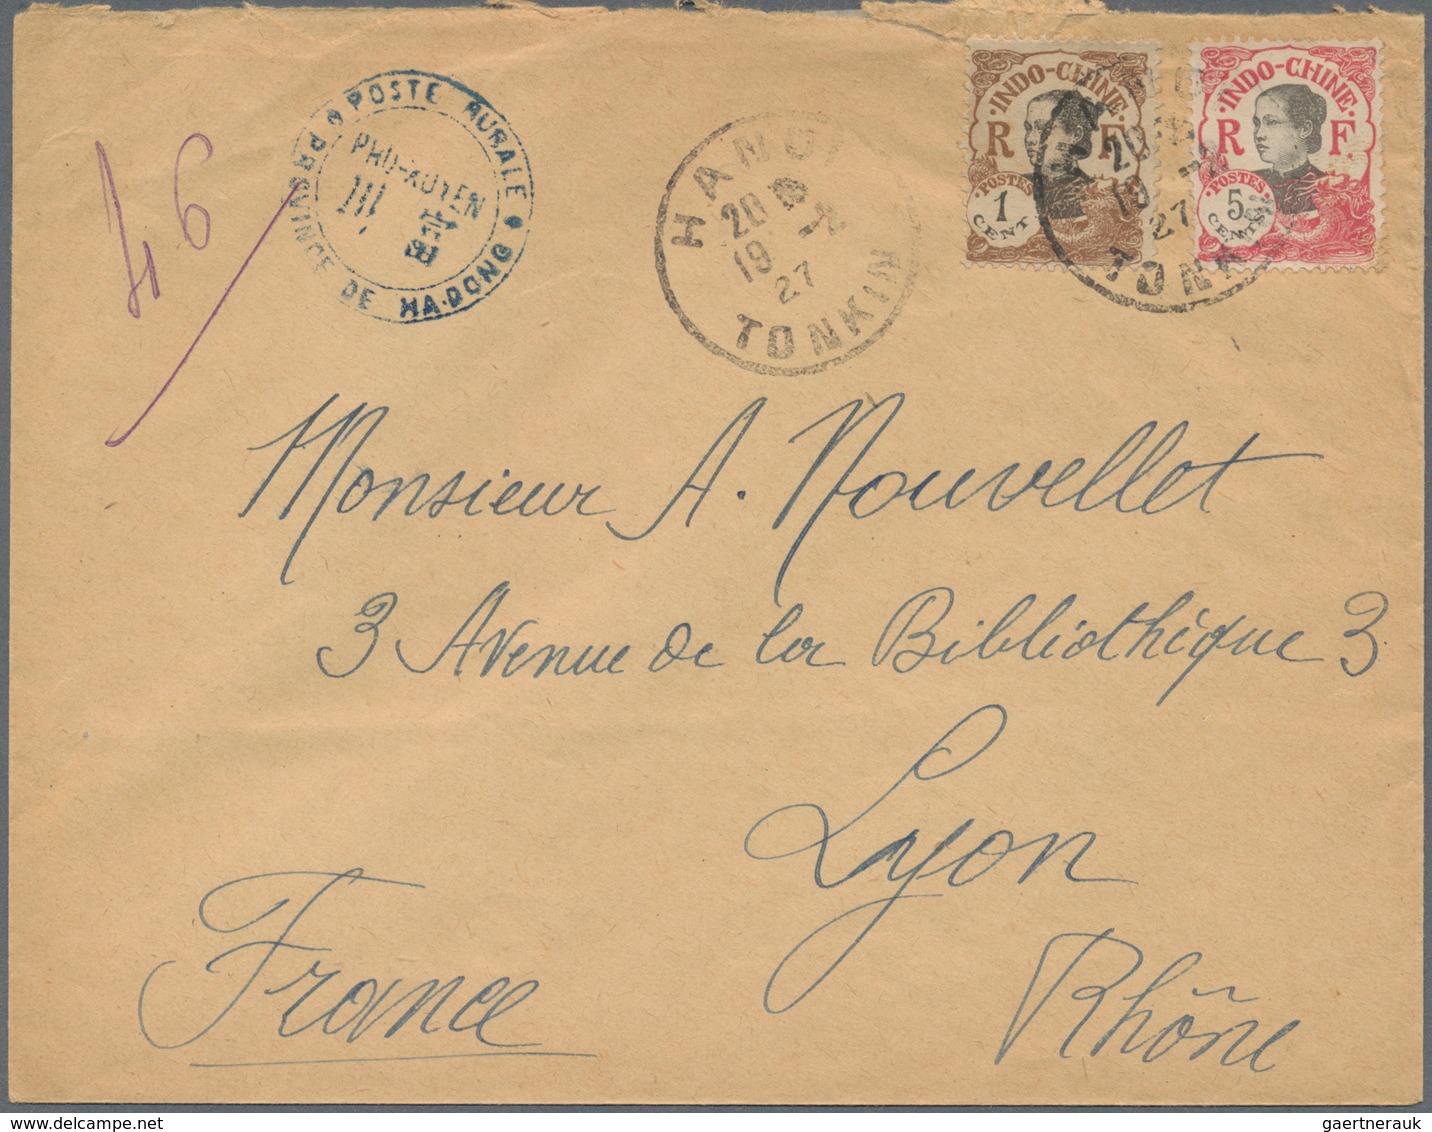 46
POSTE RURALE
PROVINCE DE HA-DONG
PHU-XUYEN
HANOI
20
19 -2
27
TONKIN
INDO-CHINE
R F
POSTES
1
CENT
20
19 -2
27
TONKIN
INDO-CHINE
R F
POSTES
5
CENTS
Monsieur A. Nouvellet
3 Avenue de la Bibliothèque 3
Lyon
Rhône
France
gaertnerauk